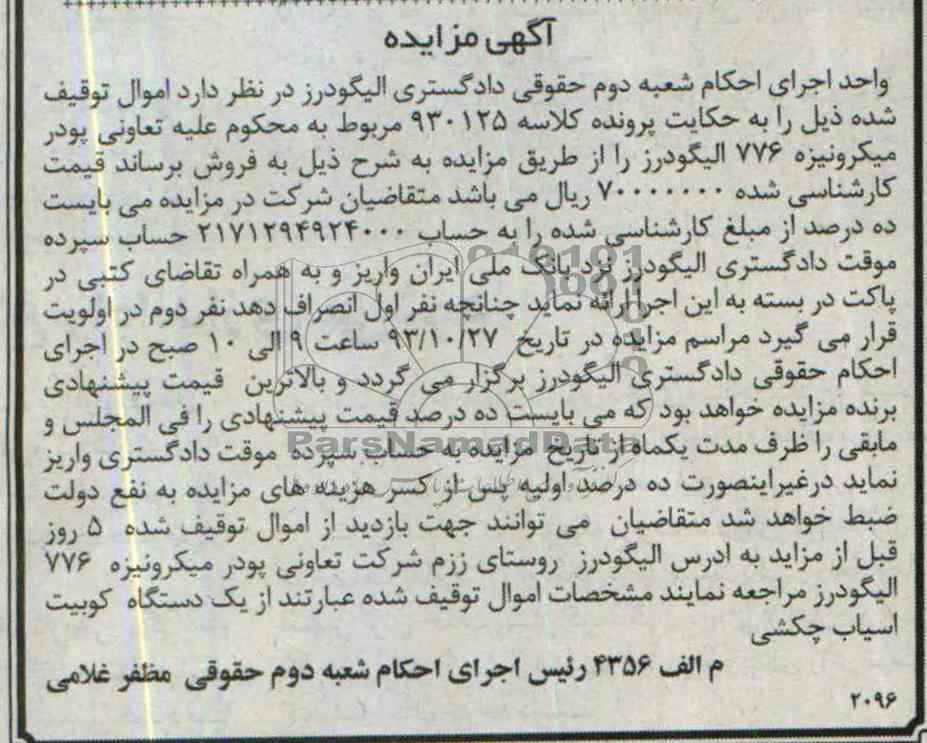 آگهی مزایده
واحد اجرای احکام شعبه دوم حقوقی دادگستری الیگودرز در نظر دارد اموال توقیف
شده ذیل را به حکایت پرونده کلاسه ۹۳۰۱۲۵ مربوط به محکوم علیه تعاونی پودر
میکرونیزه ۷۷۶ الیگودرز را از طریق مزایده به شرح ذیل به فروش برساند قیمت
کارشناسی شده ۷۰۰۰۰۰۰۰ ریال می باشد متقاضیان شرکت در مزایده می بایست
ده درصد از مبلغ کارشناسی شده را به حساب ۲۱۷۱۲۹۴۹۲۴۰۰۰ حساب سپرده
موقت دادگستری الیگودرز نزد بانک ملی ایران واریز و به همراه تقاضای کتبی در
پاکت در بسته به این اجرا ارائه نماید چنانچه نفر اول انصراف دهد نفر دوم در اولویت
قرار می گیرد مراسم مزایده در تاریخ ۹۳/۱۰/۲۷ ساعت ۹ الی ۱۰ صبح در اجرای
احکام حقوقی دادگستری الیگودرز برگزار می گردد و بالاترین قیمت پیشنهادی
برنده مزایده خواهد بود که می بایست ده درصد قیمت پیشنهادی را فی المجلس و
مابقی را ظرف مدت یکماه از تاریخ مزایده به حساب سپرده موقت دادگستری واریز
نماید درغیراینصورت ده درصد اولیه پس از کسر هزینه های مزایده به نفع دولت
ضبط خواهد شد متقاضیان می توانند جهت بازدید از اموال توقیف شده ۵ روز
قبل از مزاید به ادرس الیگودرز روستای ززم شرکت تعاونی پودر میکرونیزه ۷۷۶
الیگودرز مراجعه نمایند مشخصات اموال توقیف شده عبارتند از یک دستگاه کوبیت
اسیاب چکشی
م الف ۴۳۵۶ رئیس اجرای احکام شعبه دوم حقوقی مظفر غلامی
۲۰۹۶
ParsNamadData